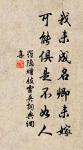 我未成名卿未嫁
可能俱是不如人
羅隱贈妓雲英詩典網
集